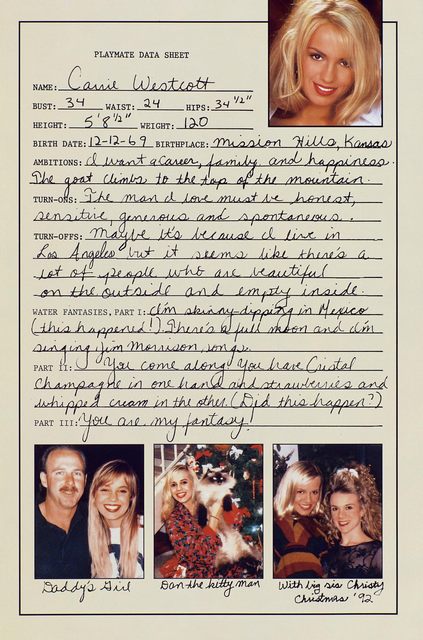 PLAYMATE DATA SHEET
NAME: Carrie Westcott
BUST: 34 WAIST: 24 HIPS: 34 1/2"
HEIGHT: 5'8 1/2" WEIGHT: 120
BIRTH DATE: 12-12-69 BIRTHPLACE: Mission Hills, Kansas
AMBITIONS: I want a career, family and happiness.
The goat climbs to the top of the mountain.
TURN-ONS: The man I love must be honest,
sensitive, generous and spontaneous.
TURN-OFFS: Maybe it's because I live in
Los Angeles but it seems like there's a
lot of people who are beautiful
on the outside and empty inside.
WATER FANTASIES, PART I: I'm skinny-dipping in Mexico
(this happened!) There's a full moon and I'm
singing Jim Morrison songs.
PART II: You come along. You have Cristal
Champagne in one hand and strawberries and
whipped cream in the other. (Did this happen?)
PART III: You are my fantasy!
Daddy's Girl
Dan-the kitty man
With big sis Christy
Christmas '92